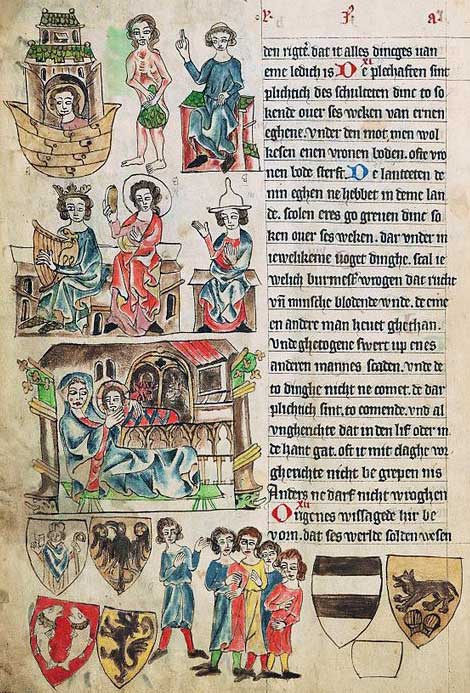 den rigtᷓ. dat it alles dineges uan
eme ledich is De plechaften sint
plichtich des schulteten dinc to so
kende ouer ses weken van ernen
eghene. vnder den mot men wol
kesen enen vronen boden. ofte vro
nen bode sterft. De lantseten de
nin eghen ne hebbet in deme lan
de. scolen eres go greuen dinc so
ken ouer ses weken. dar vnder in
iewelikeme uoget dinghe. scal ie
welich burmesˢ wrogen dat rucht
vn̄ minsche blodende wnde. de eme
en andere man heuet ghedhan.
vnde ghetogene swert up enes
anderen mannes scaden. vnde de
to dinghe nicht ne comet. de dar
plichtich sint. to comende. vnd al
vngherichte dat in den lif oder in
de hant gat. oft it mit claghe wͭ
gherichte nicht be grepen nis
Anders ne darf nicht wroghen
xii
Origenes wissagede hir be
vorn. dat ses werlde solden wesen